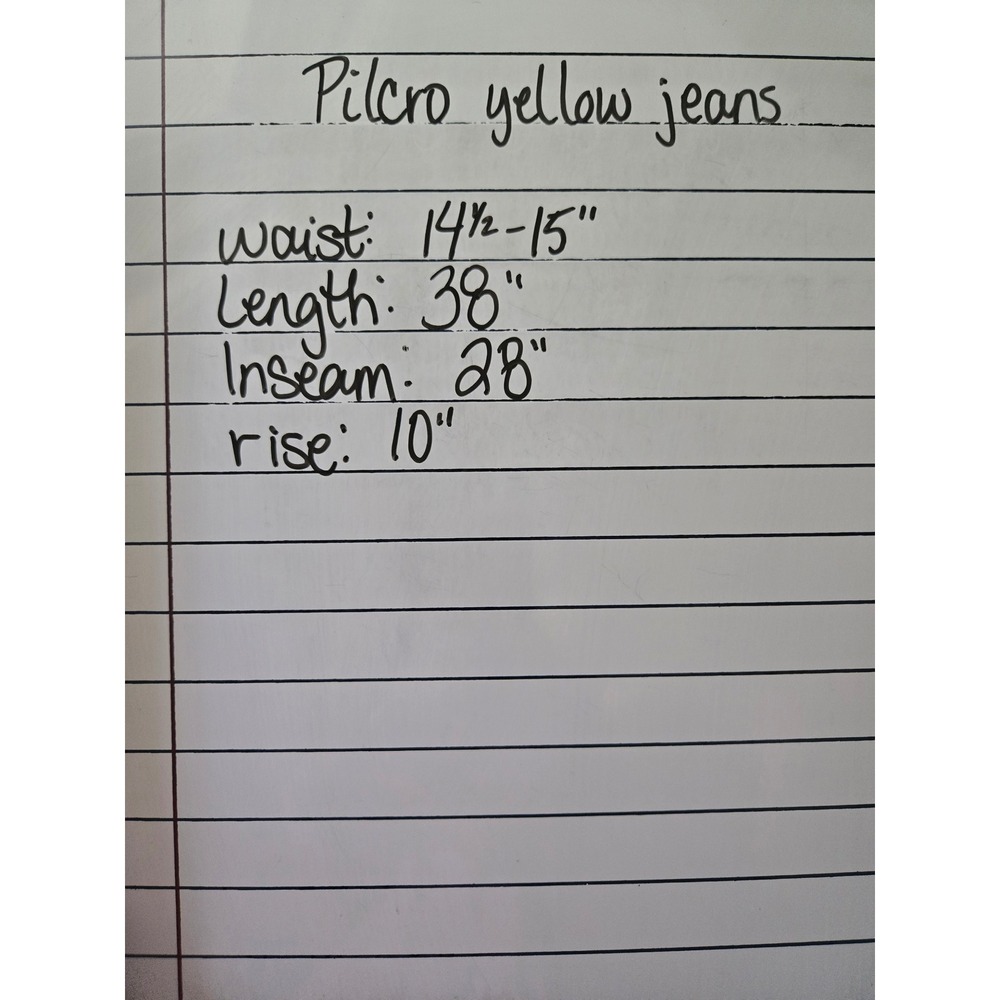 Pilcro yellow jeans
waist: 14½-15"
Length: 38"
Inseam: 28"
rise: 10"